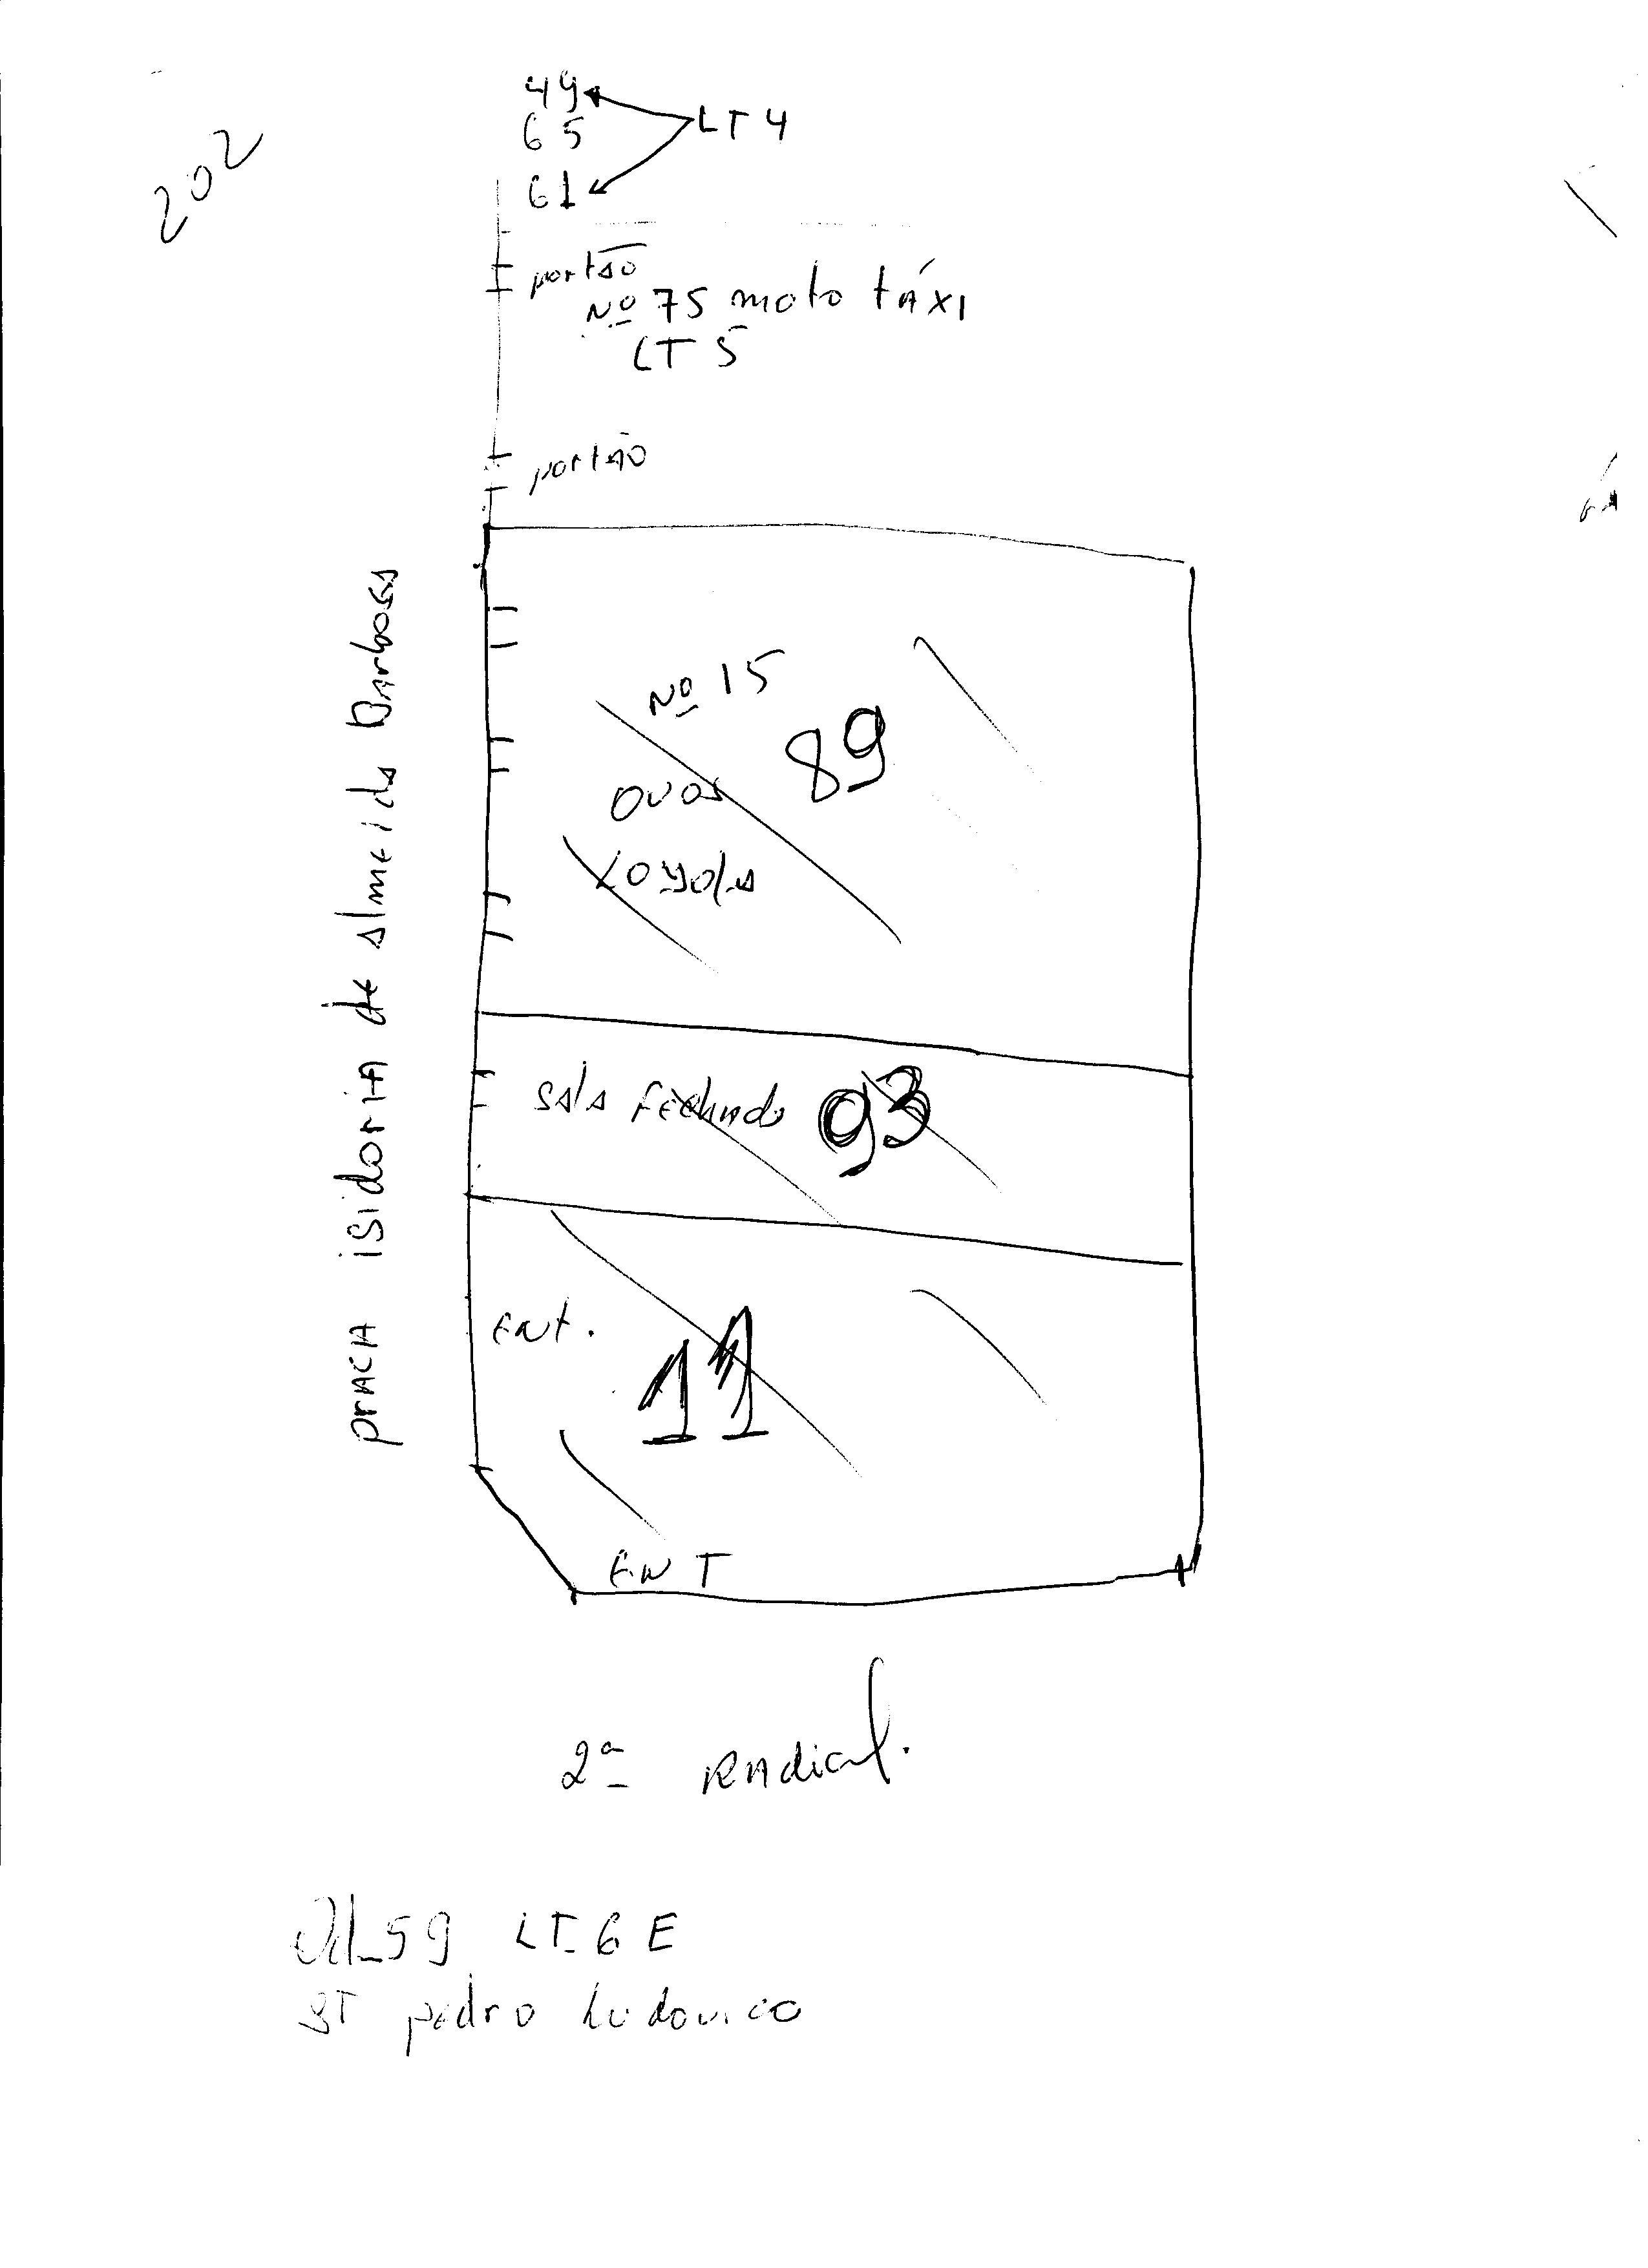 202
49
65
LT 4
61
portão
Nº 75 moto táxi
LT 5
portão
praça isidoria de almeida Barbosa
Nº 15
89
ovos
Loyola
sala fechado 93
Ent.
11
ENT
2ª Radical.
59 LT-6 E
ST pedro Ludovico